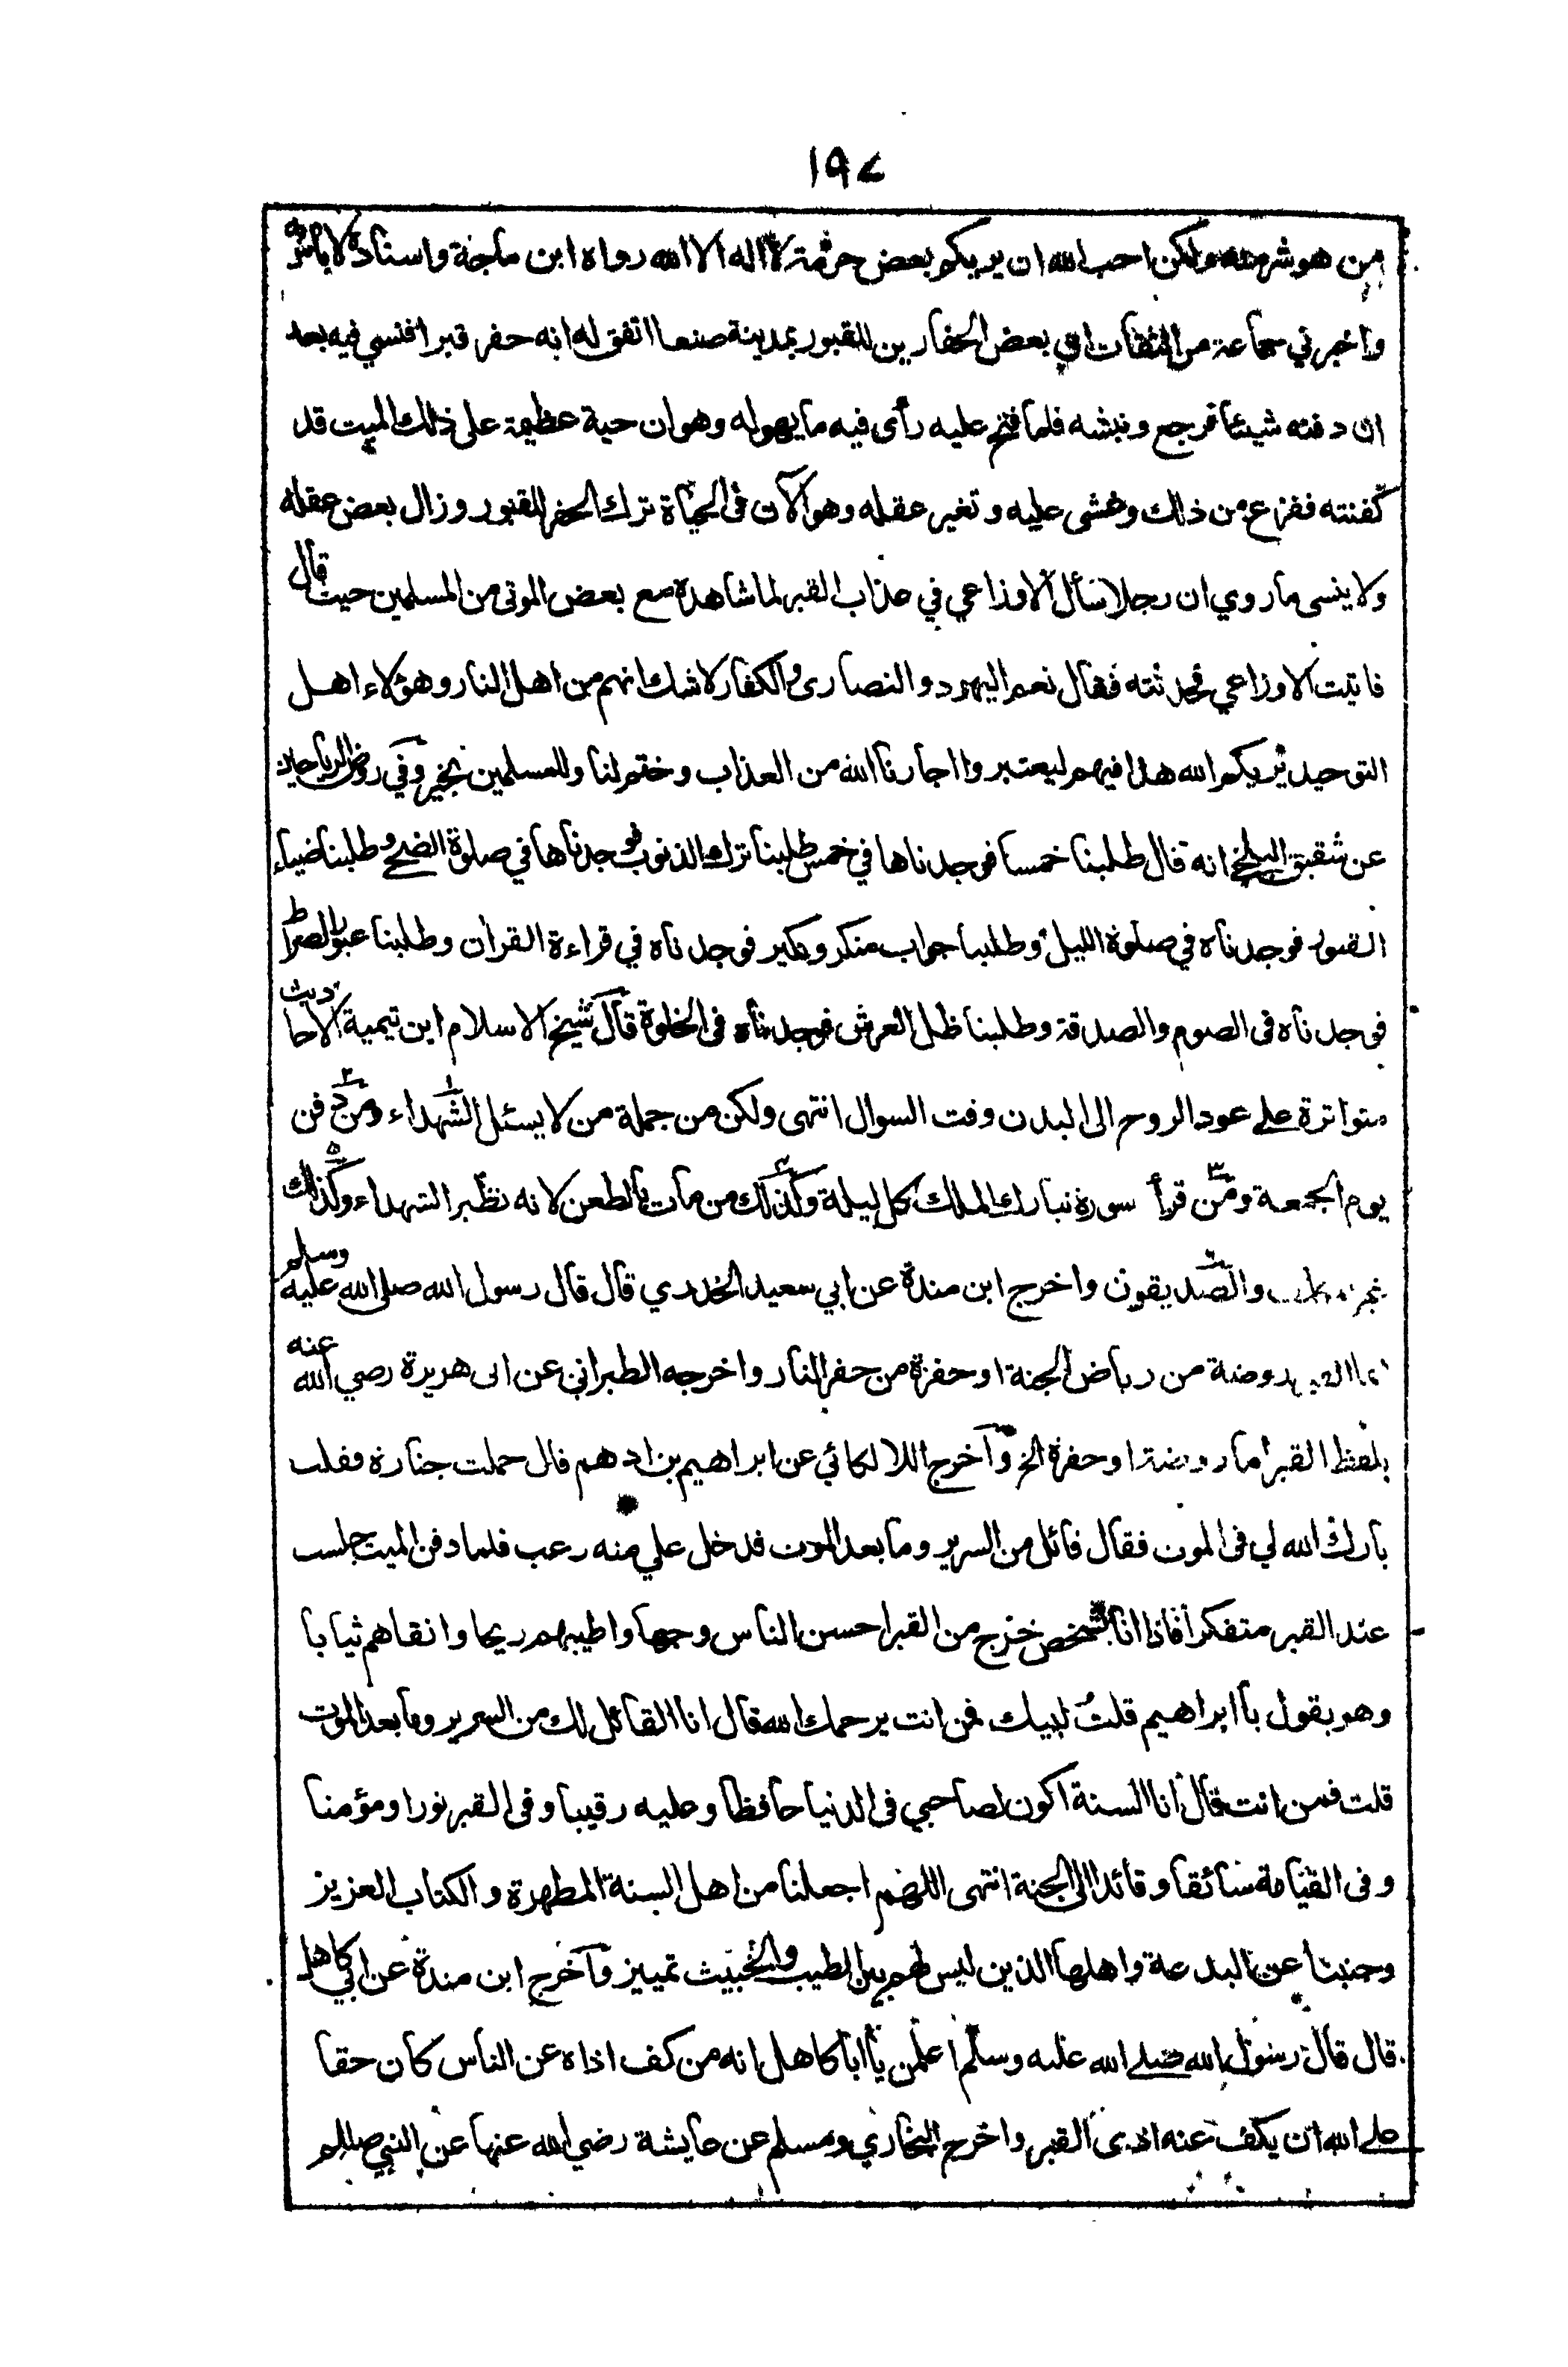 ١٩٧
من هو شر منه ولكن احب الله ان يريكم بعض حرمة لا اله الا الله رواه ابن ماجة واسناده لا باس به
واخبرني جماعة من الثقات ان بعض الحفارين للقبور بمدينة صنعا اتفق له انه حفر قبرا فنسي فيه بعد
ان دفنه شيئا فرجع ونبشه فلما فتح عليه رأى فيه ما يهوله وهو ان حية عظيمة على ذلك الميت قد
كفنته ففزع من ذلك وغشى عليه وتغير عقله وهو الآن فى الحياة ترك الحفر للقبور وزال بعض عقله
ولا ينسى ما روي ان رجلا سأل الاوزاعي في عذاب القبر لما شاهده مع بعض الموتى من المسلمين حيث قال
فاتيت الاوزاعي فحدثته فقال نعم اليهود والنصارى والكفار لا شك انهم من اهل النار وهؤلاء اهل
التوحيد يريكم الله هذا فيهم ليعتبروا اجارنا الله من العذاب وختم لنا وللمسلمين بخير وفي روض الرياحين
عن شقيق البلخي انه قال طلبنا خمسا فوجدناها في خمس طلبنا ترك الذنوب فوجدناها في صلوة الضحى وطلبنا ضياء
القبور فوجدناه في صلوة الليل وطلبنا جواب منكر ونكير فوجدناه في قراءة القرآن وطلبنا عبور الصراط
فوجدناه فى الصوم والصدقة وطلبنا ظل العرش فوجدناه فى الخلوة قال شيخ الاسلام ابن تيمية الاحاديث
متواترة على عود الروح الى البدن وقت السوال انتهى ولكن من جملة من لا يسئل الشهداء ١ ومن ٢ دفن
يوم الجمعة ومن ٣ قرأ سورة تبارك الملك كل ليلة وكذلك ٤ من مات بالطعن لانه نظير الشهداء وكذلك ٥
والصديقون ٦ واخرج ابن مندة عن ابي سعيد الخدري قال قال رسول الله صلى الله عليه وسلم
روضة من رياض الجنة او حفرة من حفر النار واخرجه الطبراني عن ابى هريرة رضي الله عنه
بلفظ القبر أما روضة او حفرة الخ وآخرج اللالكائي عن ابراهيم بن ادهم قال حملت جنازة فقلت
بارك الله لي فى الموت فقال قائل من السرير وما بعد الموت فدخل علي منه رعب فلما دفن الميت جلست
عند القبر متفكرا فاذا انا بشخص خرج من القبر احسن الناس وجها واطيبهم ريحا وانقاهم ثيابا
وهو يقول يا ابراهيم قلت لبيك فمن انت يرحمك الله قال انا القائل لك من السرير وما بعد الموت
قلت فمن انت قال انا السنة اكون لصاحبي فى الدنيا حافظا وعليه رقيبا وفى القبر نورا ومؤمنا
وفى القيامة سائقا وقائدا الى الجنة انتهى اللهم اجعلنا من اهل السنة المطهرة والكتاب العزيز
وجنبنا عن البدعة واهلها الذين ليس لهم بين الطيب والخبيث تمييز وآخرج ابن مندة عن ابي كاهل
قال قال رسول الله صلى الله عليه وسلم اعلمن يا ابا كاهل انه من كف اذاه عن الناس كان حقا
على الله ان يكف عنه اذى القبر واخرج البخاري ومسلم عن عايشة رضي الله عنها عن النبي صللم